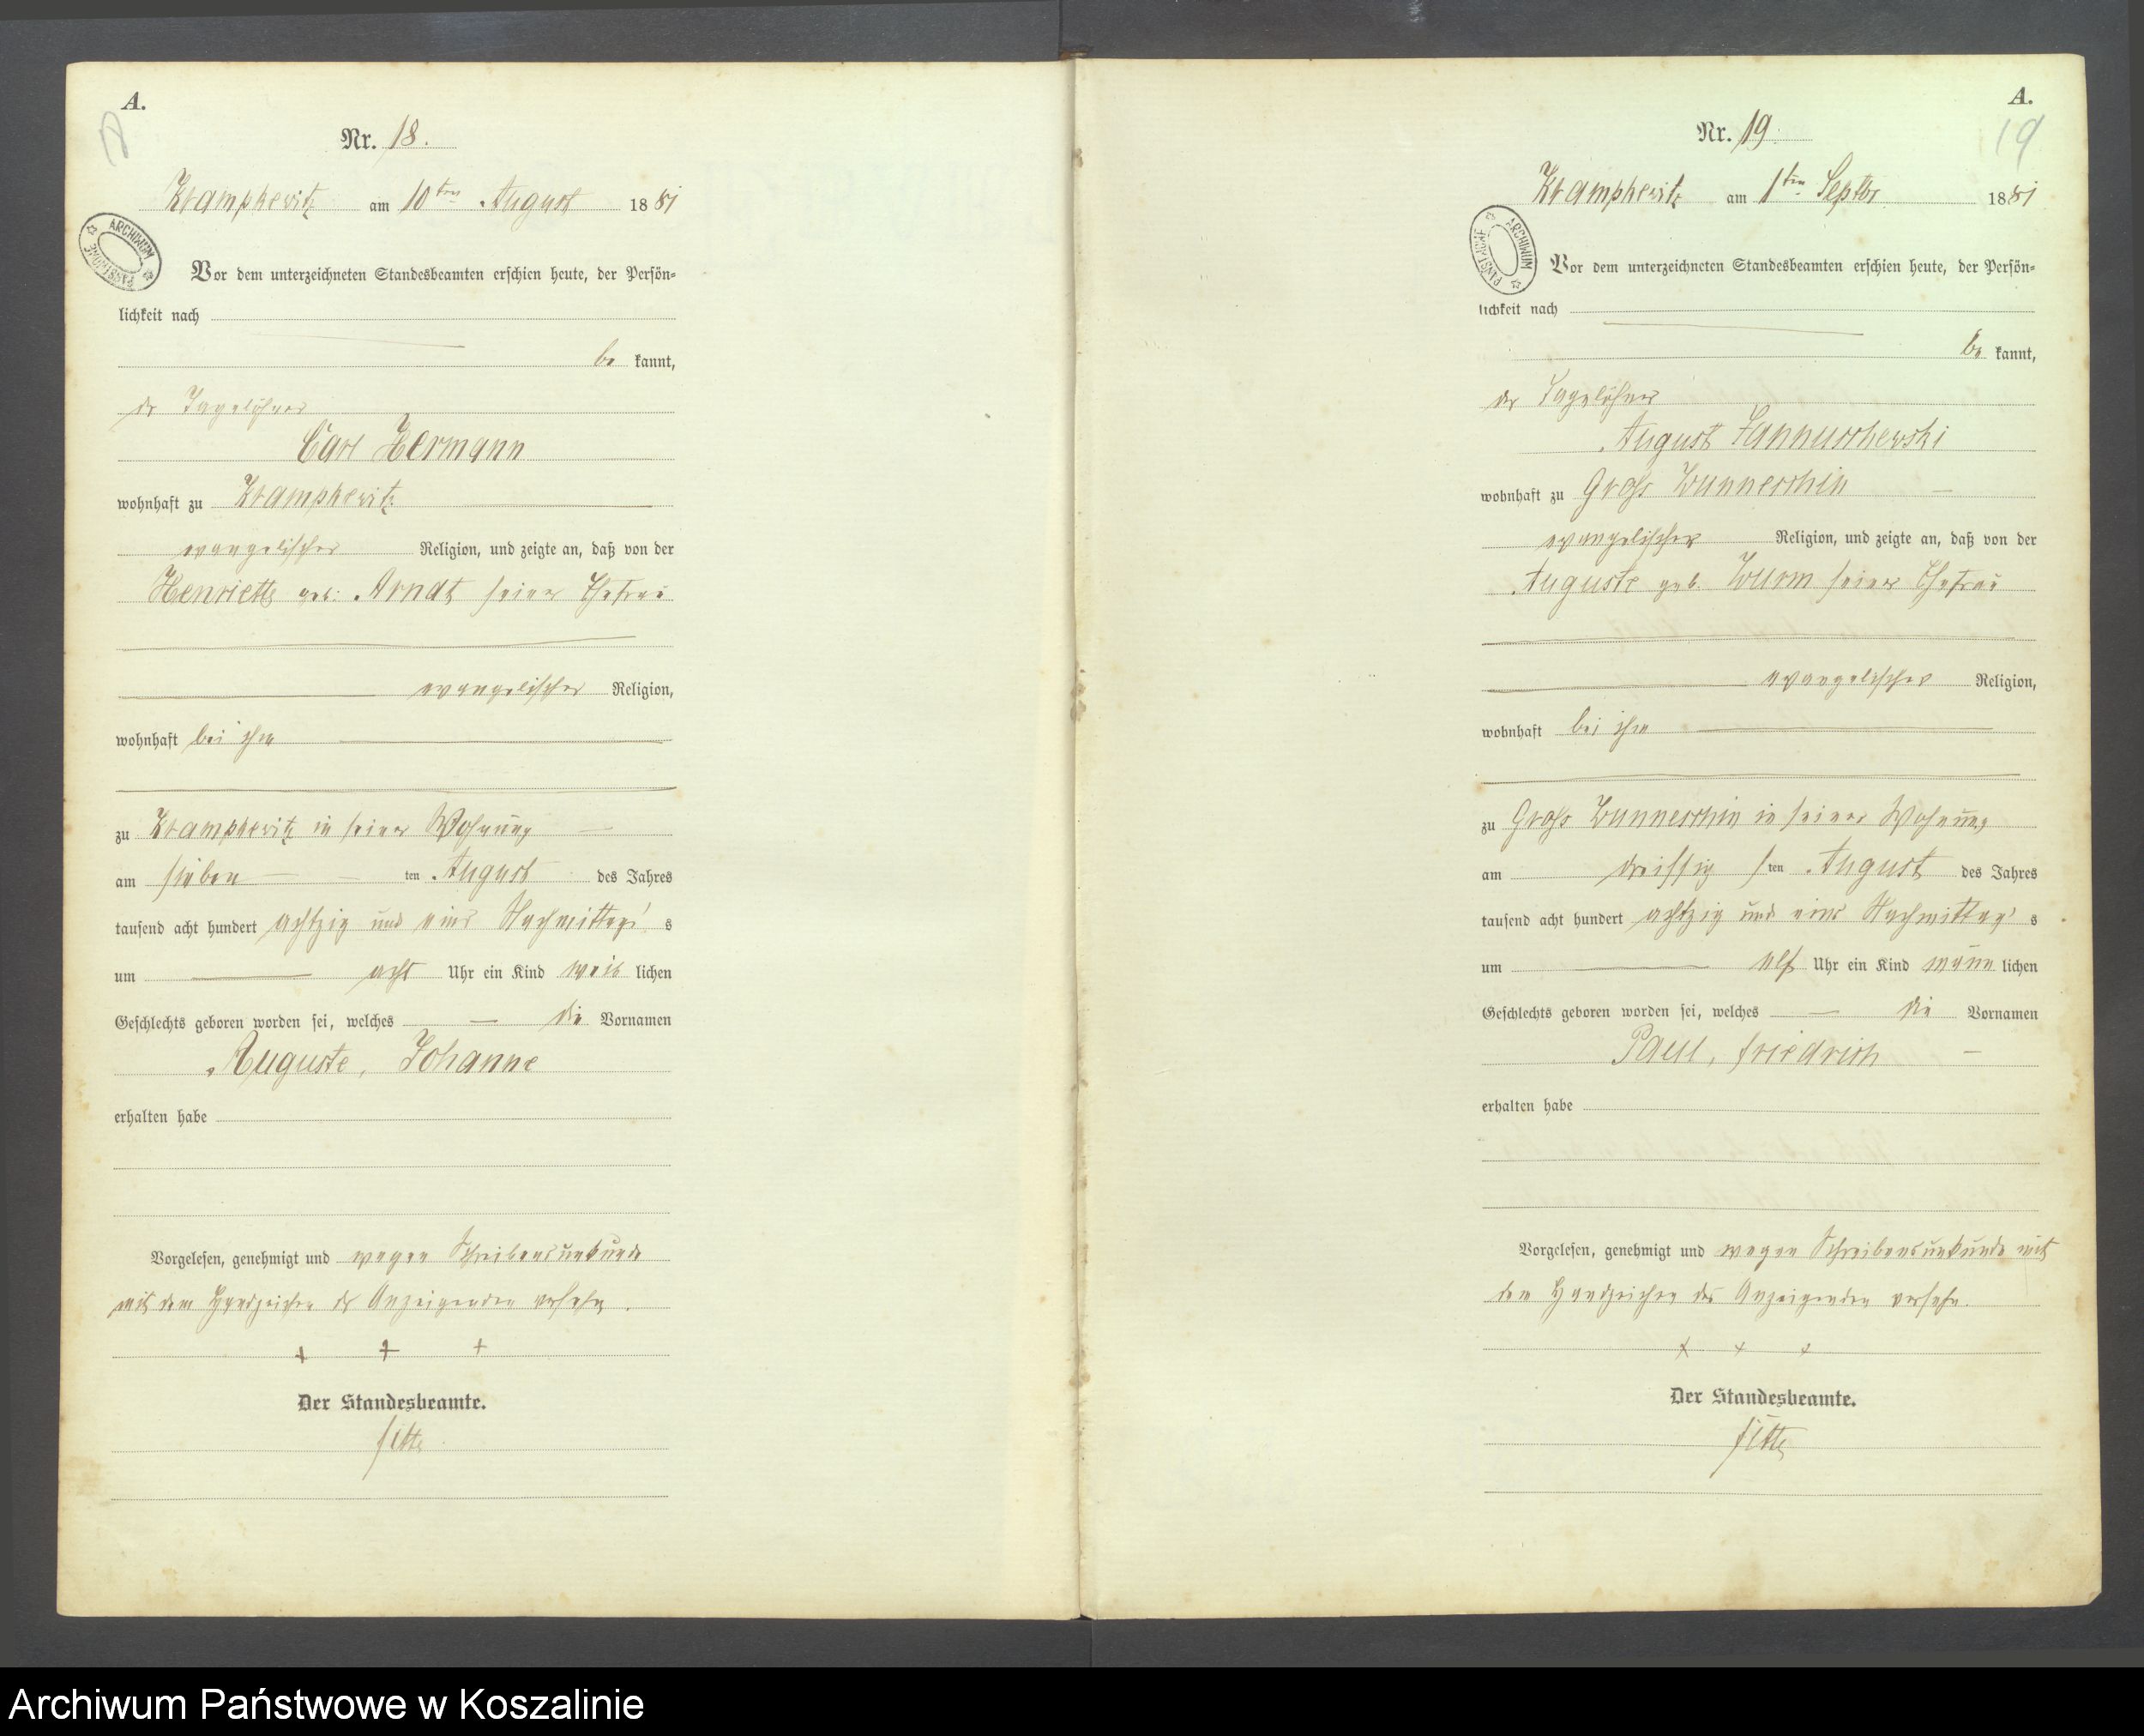 A.
18
Nr. 18.
Krampkewitz am 10ten August 1881
ARCHIWUM PAŃSTWOWE
Vor dem unterzeichneten Standesbeamten erschien heute, der Persön-
lichkeit nach
be kannt,
der Tagelöhner
Carl Hermann
wohnhaft zu Krampkewitz
evangelischer Religion, und zeigte an, daß von der
Henriette geb: Arndt seiner Ehefrau
evangelischer Religion,
wohnhaft bei ihm
zu Krampkewitz in seiner Wohnung
am sieben ten August des Jahres
tausend acht hundert achtzig und eins Nachmittag's
um acht Uhr ein Kind weib lichen
Geschlechts geboren worden sei, welches die Vornamen
Auguste, Johanne
erhalten habe
Vorgelesen, genehmigt und wegen Schreibensunkunde
mit dem Handzeichen des Anzeigenden versehn.
+ + +
Der Standesbeamte.
Fitte
A.
19
Nr. 19.
Krampkewitz am 1ten Septbr 1881
ARCHIWUM PAŃSTWOWE
Vor dem unterzeichneten Standesbeamten erschien heute, der Persön-
lichkeit nach
be kannt,
der Tagelöhner
August Jannuschewski
wohnhaft zu Gross Wunneschin
evangelischer Religion, und zeigte an, daß von der
Auguste geb. Wurm seiner Ehefrau
evangelischer Religion,
wohnhaft bei ihm
zu Gross Wunneschin in seiner Wohnung
am dreissig sten August des Jahres
tausend acht hundert achtzig und eins Nachmittag's
um elf Uhr ein Kind männ lichen
Geschlechts geboren worden sei, welches die Vornamen
Paul, Friedrich
erhalten habe
Vorgelesen, genehmigt und wegen Schreibensunkunde mit
dem Handzeichen des Anzeigenden versehn.
+ + +
Der Standesbeamte.
Fitte
Archiwum Państwowe w Koszalinie